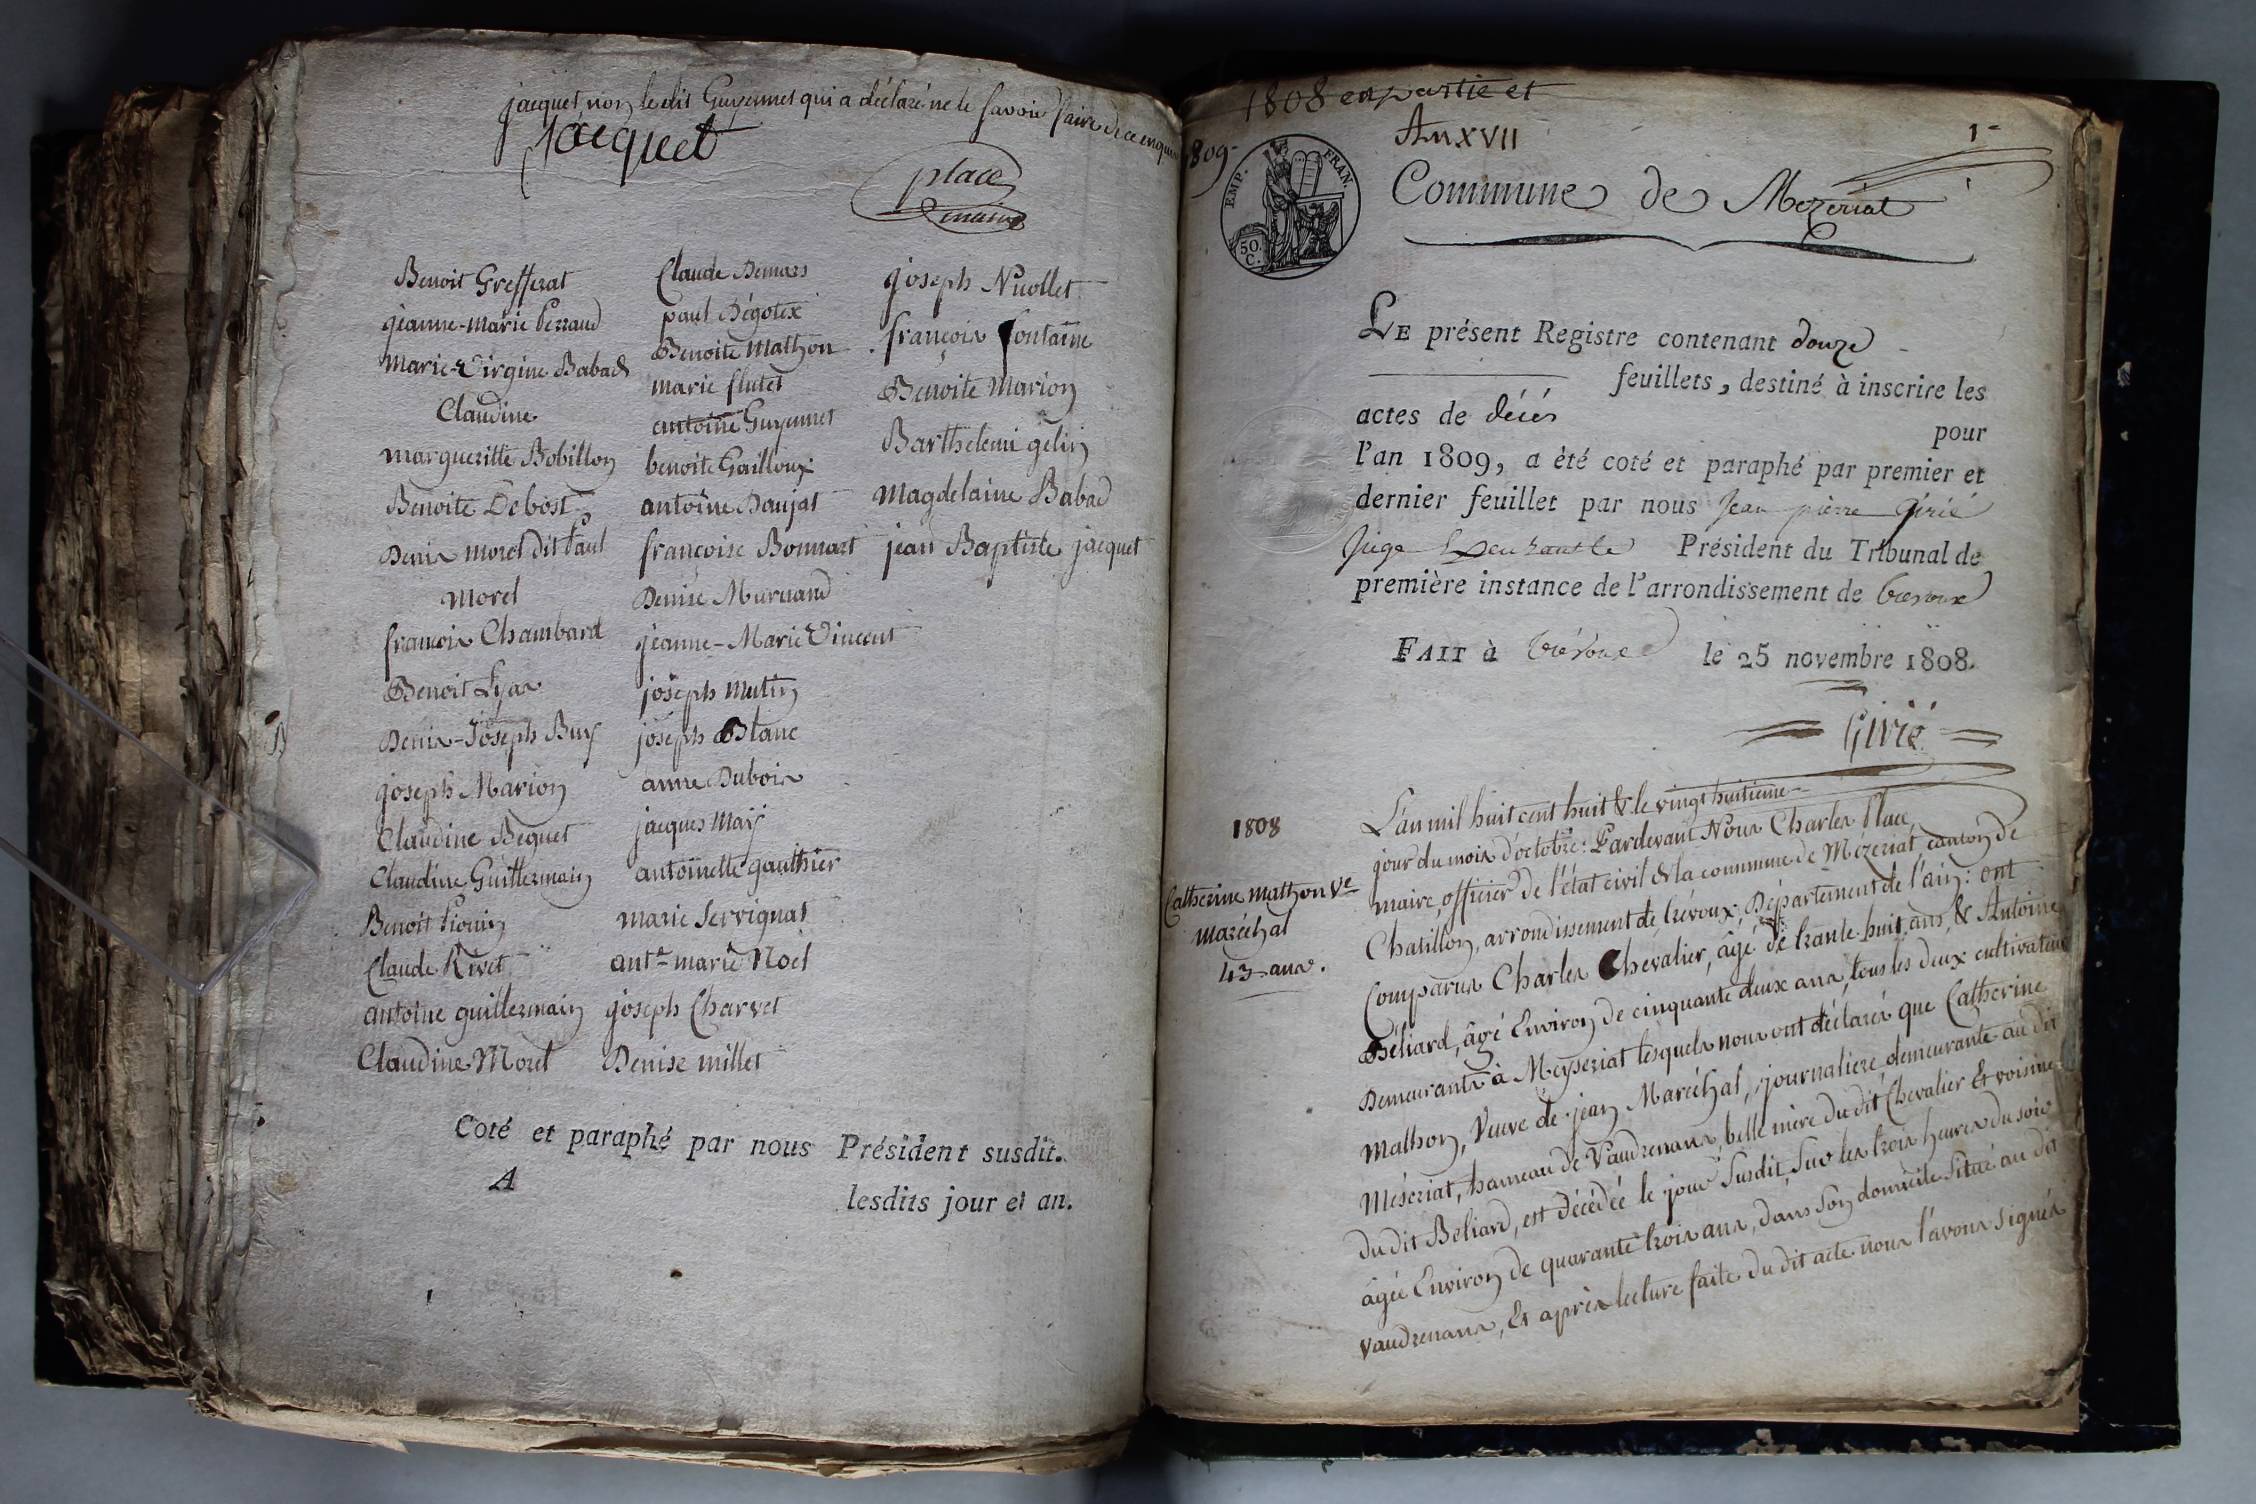 jacquet non le dit Guyennet qui a déclaré ne le savoir faire de ce enquis
Jacquet
place
maire
Benoit Grefferat
jeanne-marie Perraud
marie-Virgine Babad
Claudine
margueritte Bobillon
Benoite Debost
Denis morel dit Paul
morel
françois Chambard
Benoit Lyas
Denis-Joseph Buy
joseph Marion
Claudine Beguet
Claudine Guillermain
Benoit Pionin
Claude Rivet
antoine guillermain
Claudine Morel
Claude Demars
paul Dégotex
Benoite Mathon
marie flutet
antoine Guyennet
benoite Gailloux
antoine Daujat
françoise Bonnart
Denise Muruand
jeanne-Marie Vincent
joseph Mutin
joseph Blanc
anne Dubois
jacques May
antoinette gauthier
marie Servignat
antte marie Noel
joseph Charvet
Denise millet
joseph Nuollet
françois fontaine
Benoite Marion
Barthelemi gelin
Magdelaine Babad
jean Baptiste jacquet
Coté et paraphé par nous Président susdit.
A
lesdits jour et an.
1808 en partie et
1809-
An XVII
1-
EMP. FRAN.
50.
C.
Commune de Mezeriat
LE présent Registre contenant douze
feuillets, destiné à inscrire les
actes de décés
pour
l'an 1809, a été coté et paraphé par premier et
dernier feuillet par nous Jean pierre Girié
Juge Président du Tribunal de
première instance de l'arrondissement de trevoux
FAIT à trévoux le 25 novembre 1808.
Girié
1808
L'an mil huit cent huit & le vingt huitieme
jour du mois d'octobre: Pardevant Nous Charles Place
maire, officier de l'état civil de la commune de Mézériat canton de
Chatillon, arrondissement de trévoux, Département de l'ain: ont
Comparus Charles Chevalier, âgé de trante huit ans, & Antoine
Béliard, âgé Environ de cinquante deux ans, tous les deux cultivateurs
Demeurants à Meyseriat lesquels nous ont déclarés que Catherine
Mathon, Veuve de jean Maréchal, journaliere demeurante au dit
Méseriat, hameau de Vaudrenans, belle mère du dit Chevalier Et voisine
du dit Beliard, est décédée le jour susdit, sur les trois heures du soir
âgée Environ de quarante trois ans, dans son domicile situé au dit
vaudrenans, Et après lecture faite du dit acte nous l'avons signés
Catherine mathon Ve
maréchal
43 ans.